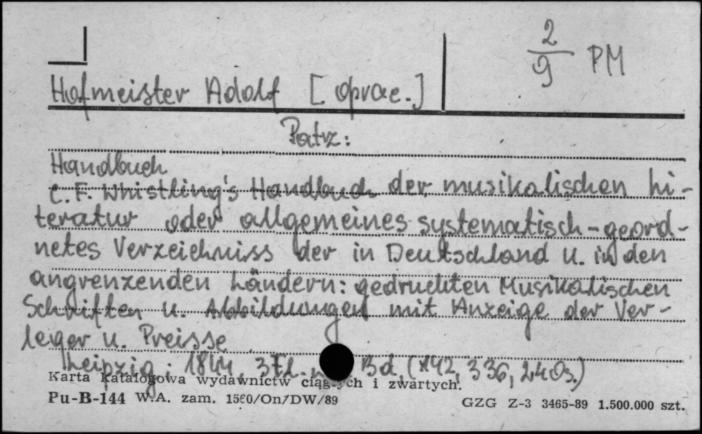 2/9 PM
Hofmeister Adolf [oprac.]
Patrz:
Handbuch
C. F. Whistling's Handbuch der musikalischen Li-
teratur oder allgemeines systematisch-geord-
netes Verzeichniss der in Deutschland u. in den
angrenzenden Ländern: gedruckten Musikalischen
Schriften u. Abbildungen mit Anzeige der Ver-
leger u. Preisse
Leipzig: 1844. 3 Bd. 336,
Karta katalogowa wydawnictw ciągłych i zwartych.
Pu-B-144 W.A. zam. 1560/On/DW/89 GZG Z-3 3465-89 1.500.000 szt.